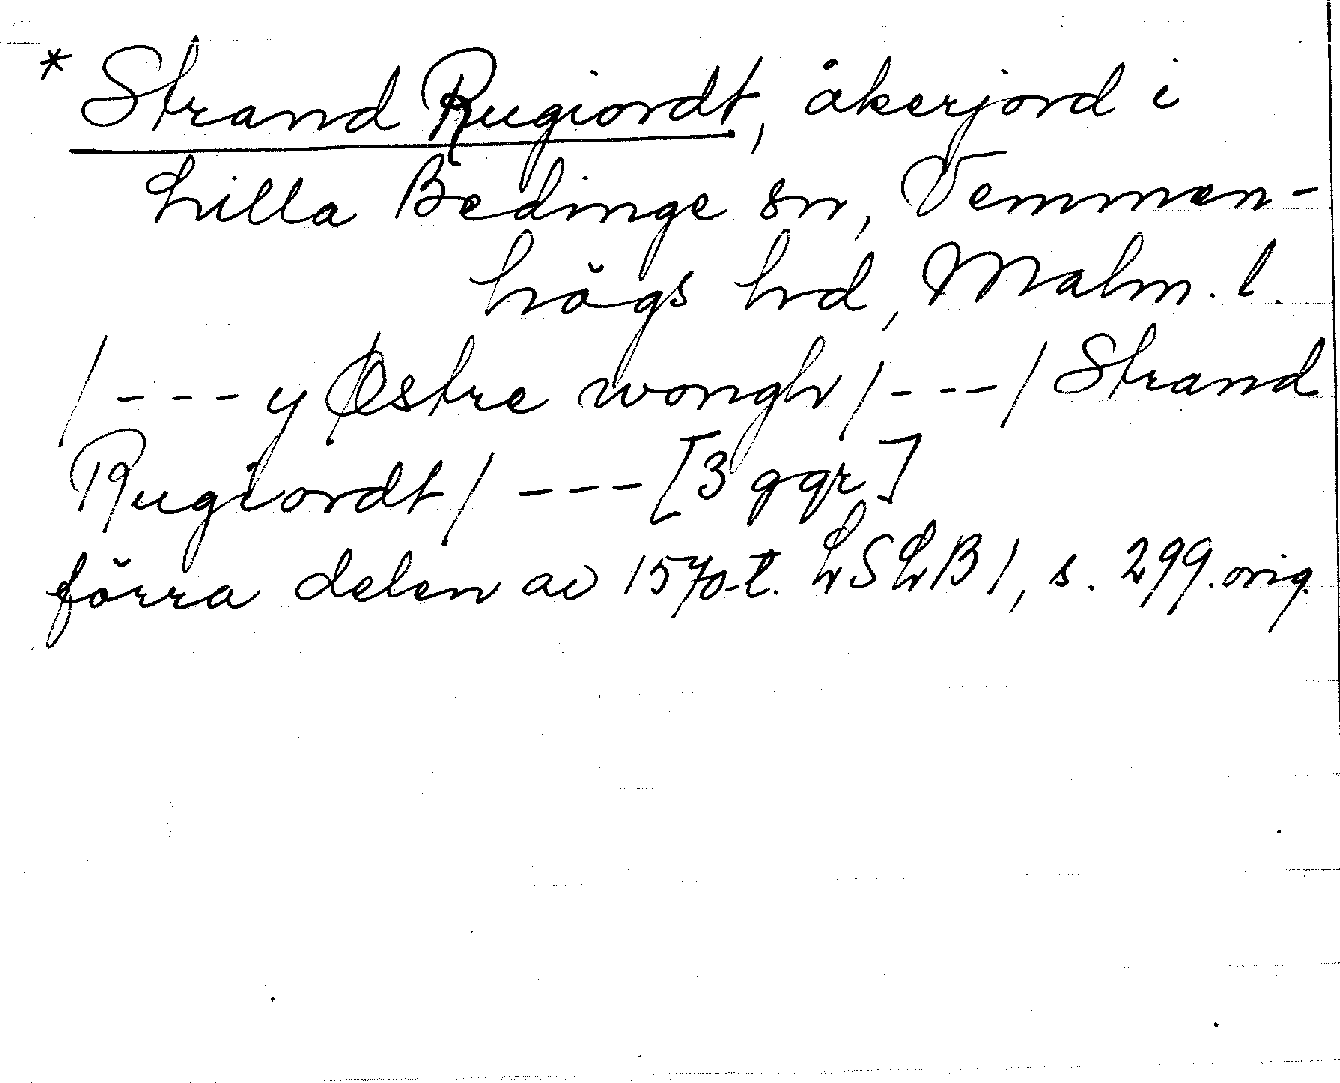 * Strand Rugiordt, åkerjord i
Lilla Bedinge sn, Vemmen-
högs hd, Malm. l.
/ --- y Østre wongh / --- / Strand
Rugiordt / --- [3 ggr]
förra delen av 1570-t. LSLB 1, s. 299. orig.